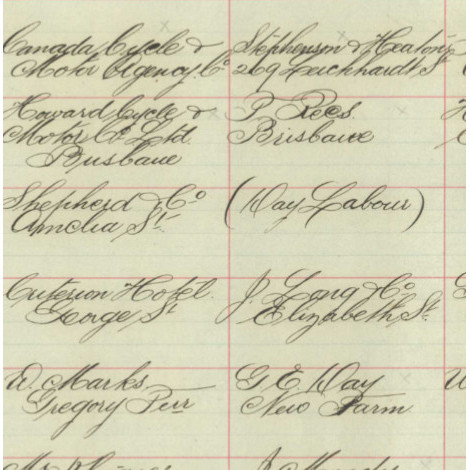 Canada Cycle &
Motor Agency Co
Stephenson & Heaton
269 Leichhardt St
Howard Cycle &
Motor Co Ltd.
Brisbane
P. Rees
Brisbane
Shepherd & Co
Amelia St
(Day Labour)
Criterion Hotel.
George St
J. Long & Co
Elizabeth St.
W. Marks
Gregory Terr
G E Day
New Farm